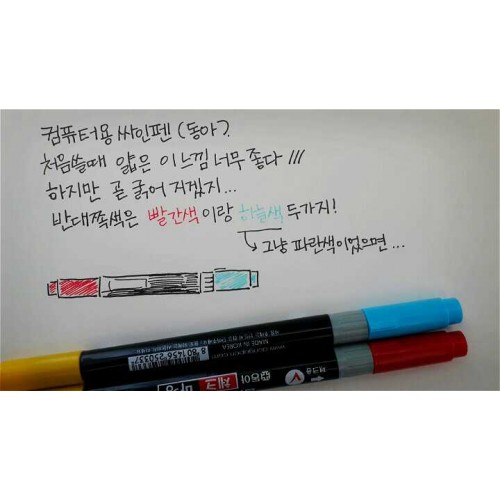 컴퓨터용 싸인펜 (동아?
처음쓸때 얇은 이느낌 너무 좋다 ///
하지만 곧 굵어 지겠지...
반대쪽색은 빨간색 이랑 하늘색 두가지!
그냥 파란색이었으면 ...
MADE IN KOREA
8 801456 250337
동아
체크
마킹